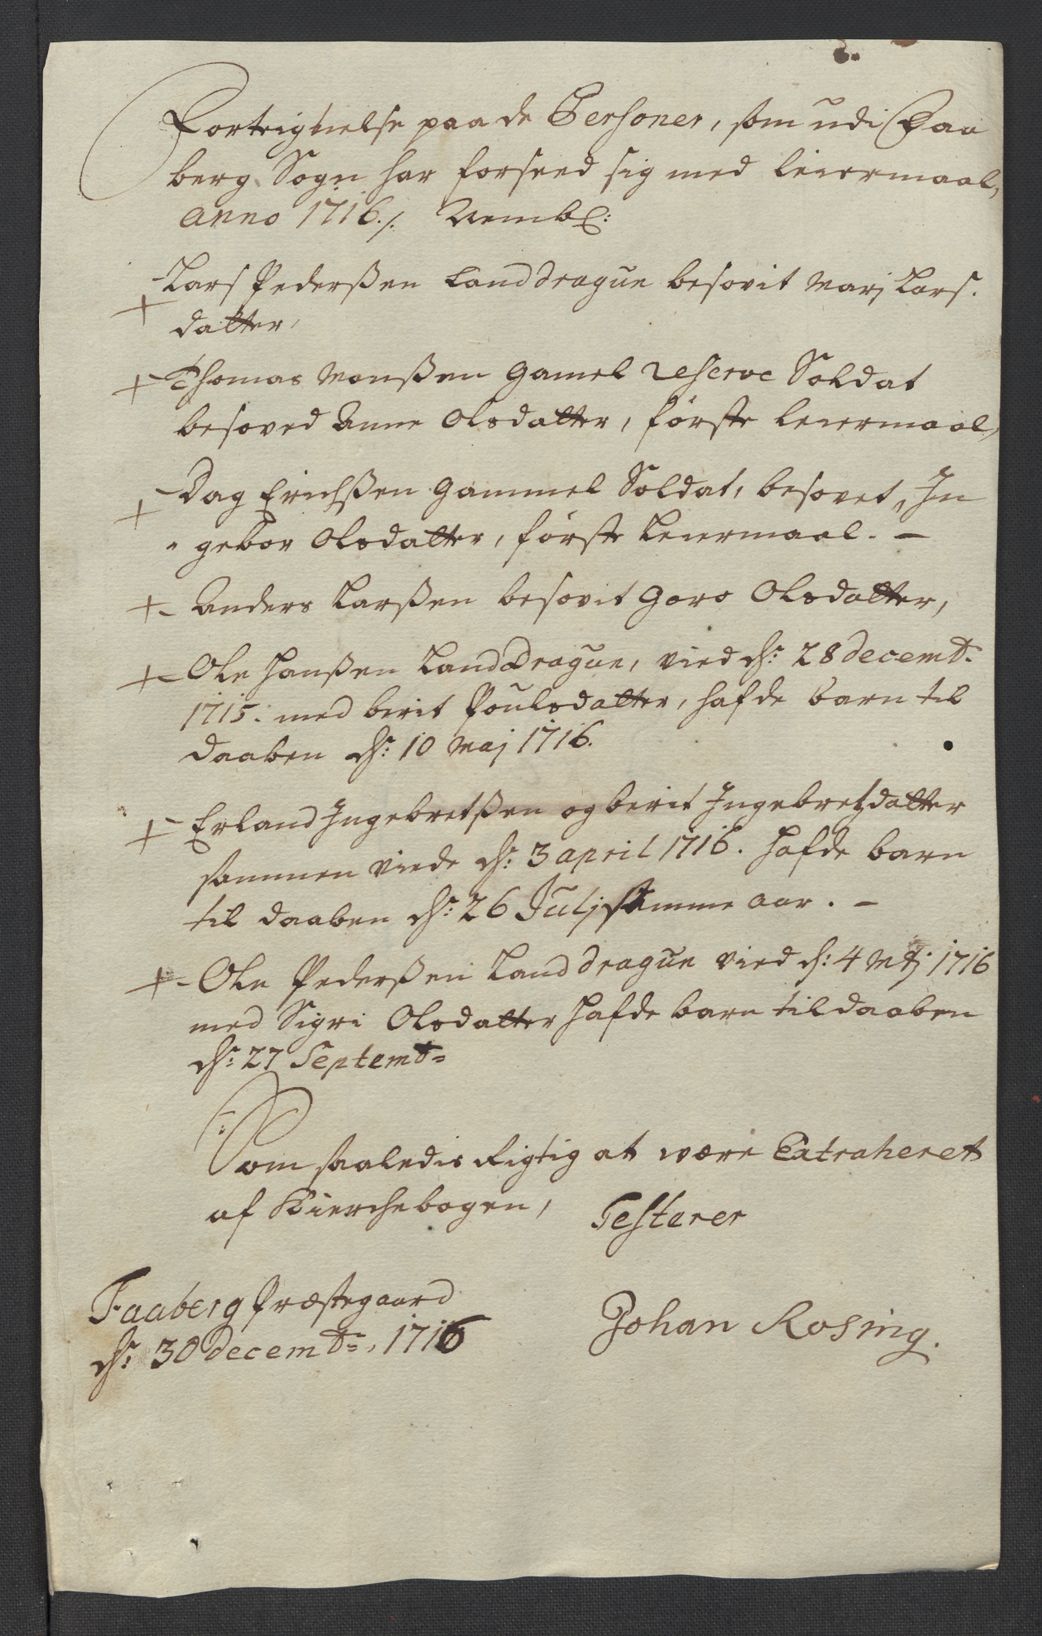 Fortrignelse paa de Personer, som udi Faa
berg Sogn har forseed sig med leiermaal,
Anno 1716./. Nembl:
Lars Pederßen Landdragun besovit Marj Lars.
datter,
+ Thomas Monßen gamel reserve Soldat
besoved Anne Olsdatter, første leiermaal,
+ Dag Erichßen gammel Soldat, besovet, In
gebor Olsdatter, første Leiermaal. –
+ Anders Larßen besovit Goro Olsdatter,
+ Ole Hanßen Land Dragun, vied d: 28 decemb.
1715. med berit Poulsdatter, hafde barn til
daaben d: 10 Maj 1716.
+ Erland Ingebretßen og berit Ingebretzdatter
sammen viede d: 3 april 1716. hafde barn
til daaben d: 26 Julj samme aar. –
+ Ole Pederßen Land dragun vied d: 4 1716
med Sigri Olsdatter hafde barn til daaben
d: 27 Septemb=
Som saaledis Rigtig at være Extraheret
af Kierchebogen,
Testerer
Faaberg Præstegaard
d: 30 decemb=, 1716
Johan Rosing.